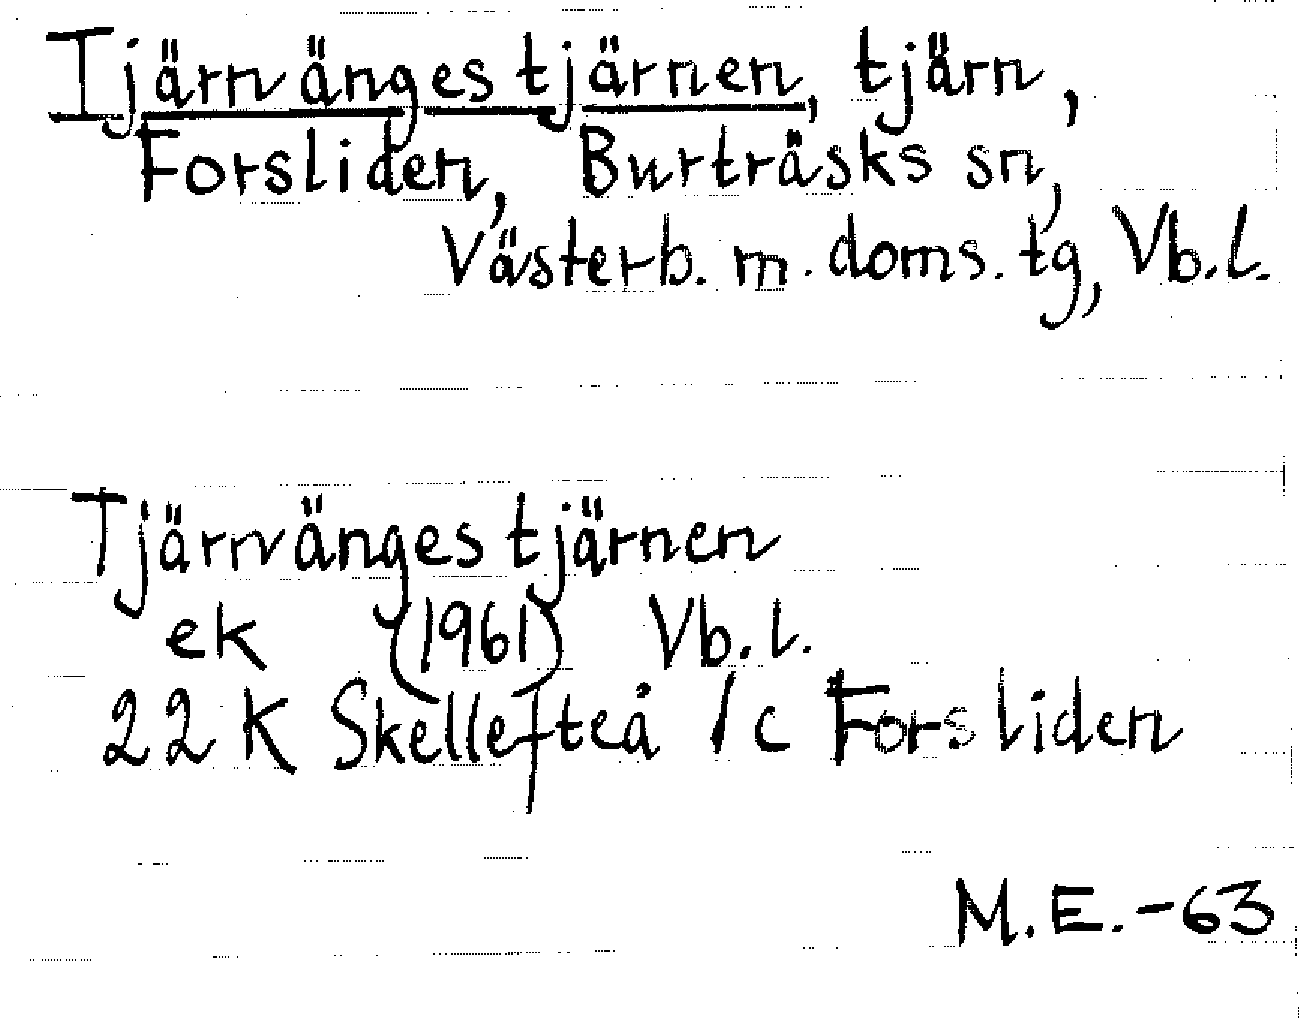 Tjärnvängestjärnen, tjärn,
Forsliden, Burträsks sn,
Västerb. m. doms. tg, Vb.l.
Tjärnvängestjärnen
ek (1961) Vb.l.
22 K Skellefteå 1c Forsliden
M.E.-63